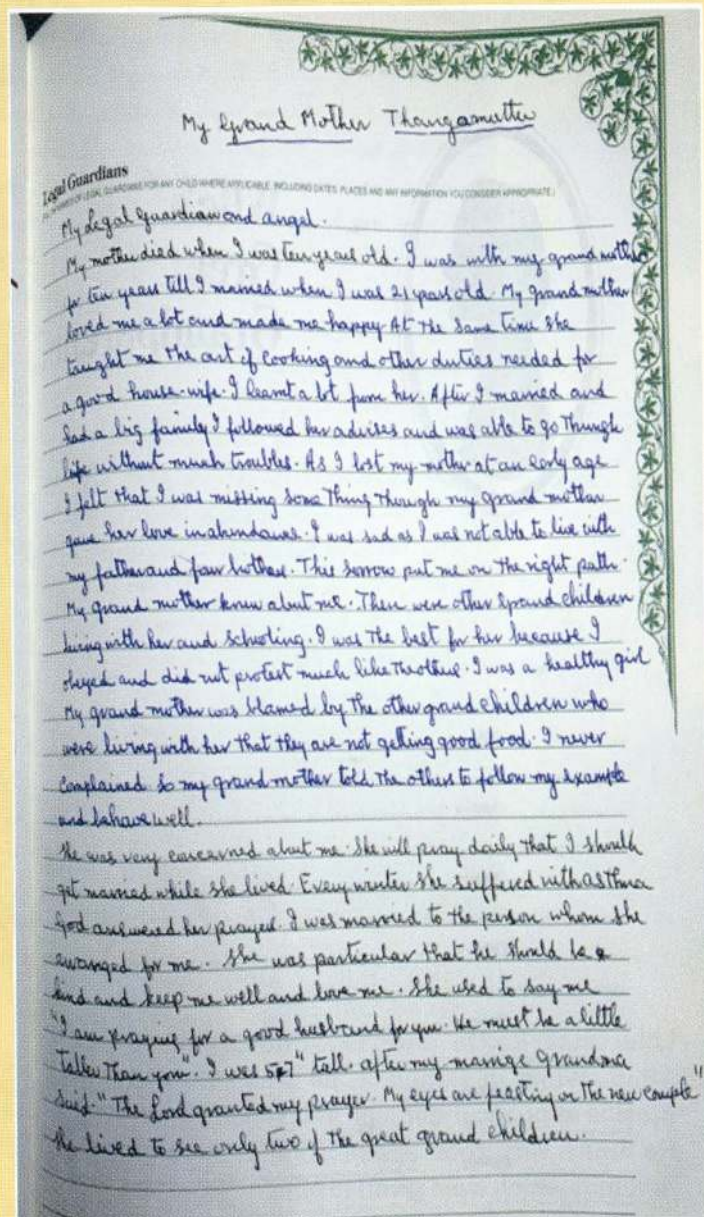 My Grand Mother Thangamuttu
Legal Guardians
NAMES OF LEGAL GUARDIANS FOR ANY CHILD WHERE APPLICABLE, INCLUDING DATES, PLACES AND ANY INFORMATION YOU CONSIDER APPROPRIATE.)
My Legal Guardian and angel.
My mother died when I was ten years old. I was with my grand mother
for ten years till I married when I was 21 years old. My grand mother
loved me a lot and made me happy. At the same time she
taught me the art of cooking and other duties needed for
a good house-wife. I learnt a lot from her. After I married and
had a big family I followed her advises and was able to go through
life without much troubles. As I lost my mother at an early age
I felt that I was missing some thing though my grand mother
gave her love in abundance. I was sad as I was not able to live with
my father and four brothers. This sorrow put me on the right path.
My grand mother knew about me. There were other grand children
living with her and schooling. I was the best for her because I
obeyed and did not protest much like the others. I was a healthy girl
My grand mother was blamed by the other grand children who
were living with her that they are not getting good food. I never
complained so my grand mother told the others to follow my example
and behave well.
She was very concerned about me. She will pray daily that I should
get married while she lived. Every winter she suffered with asthma
God answered her prayer. I was married to the person whom she
arranged for me. She was particular that he should be
kind and keep me well and love me. She used to say me
"I am praying for a good husband for you. He must be a little
taller than you". I was 5,7" tall. after my marrige Grandma
said. "The Lord granted my prayer. My eyes are feasting on the new couple"
She lived to see only two of the great grand children.